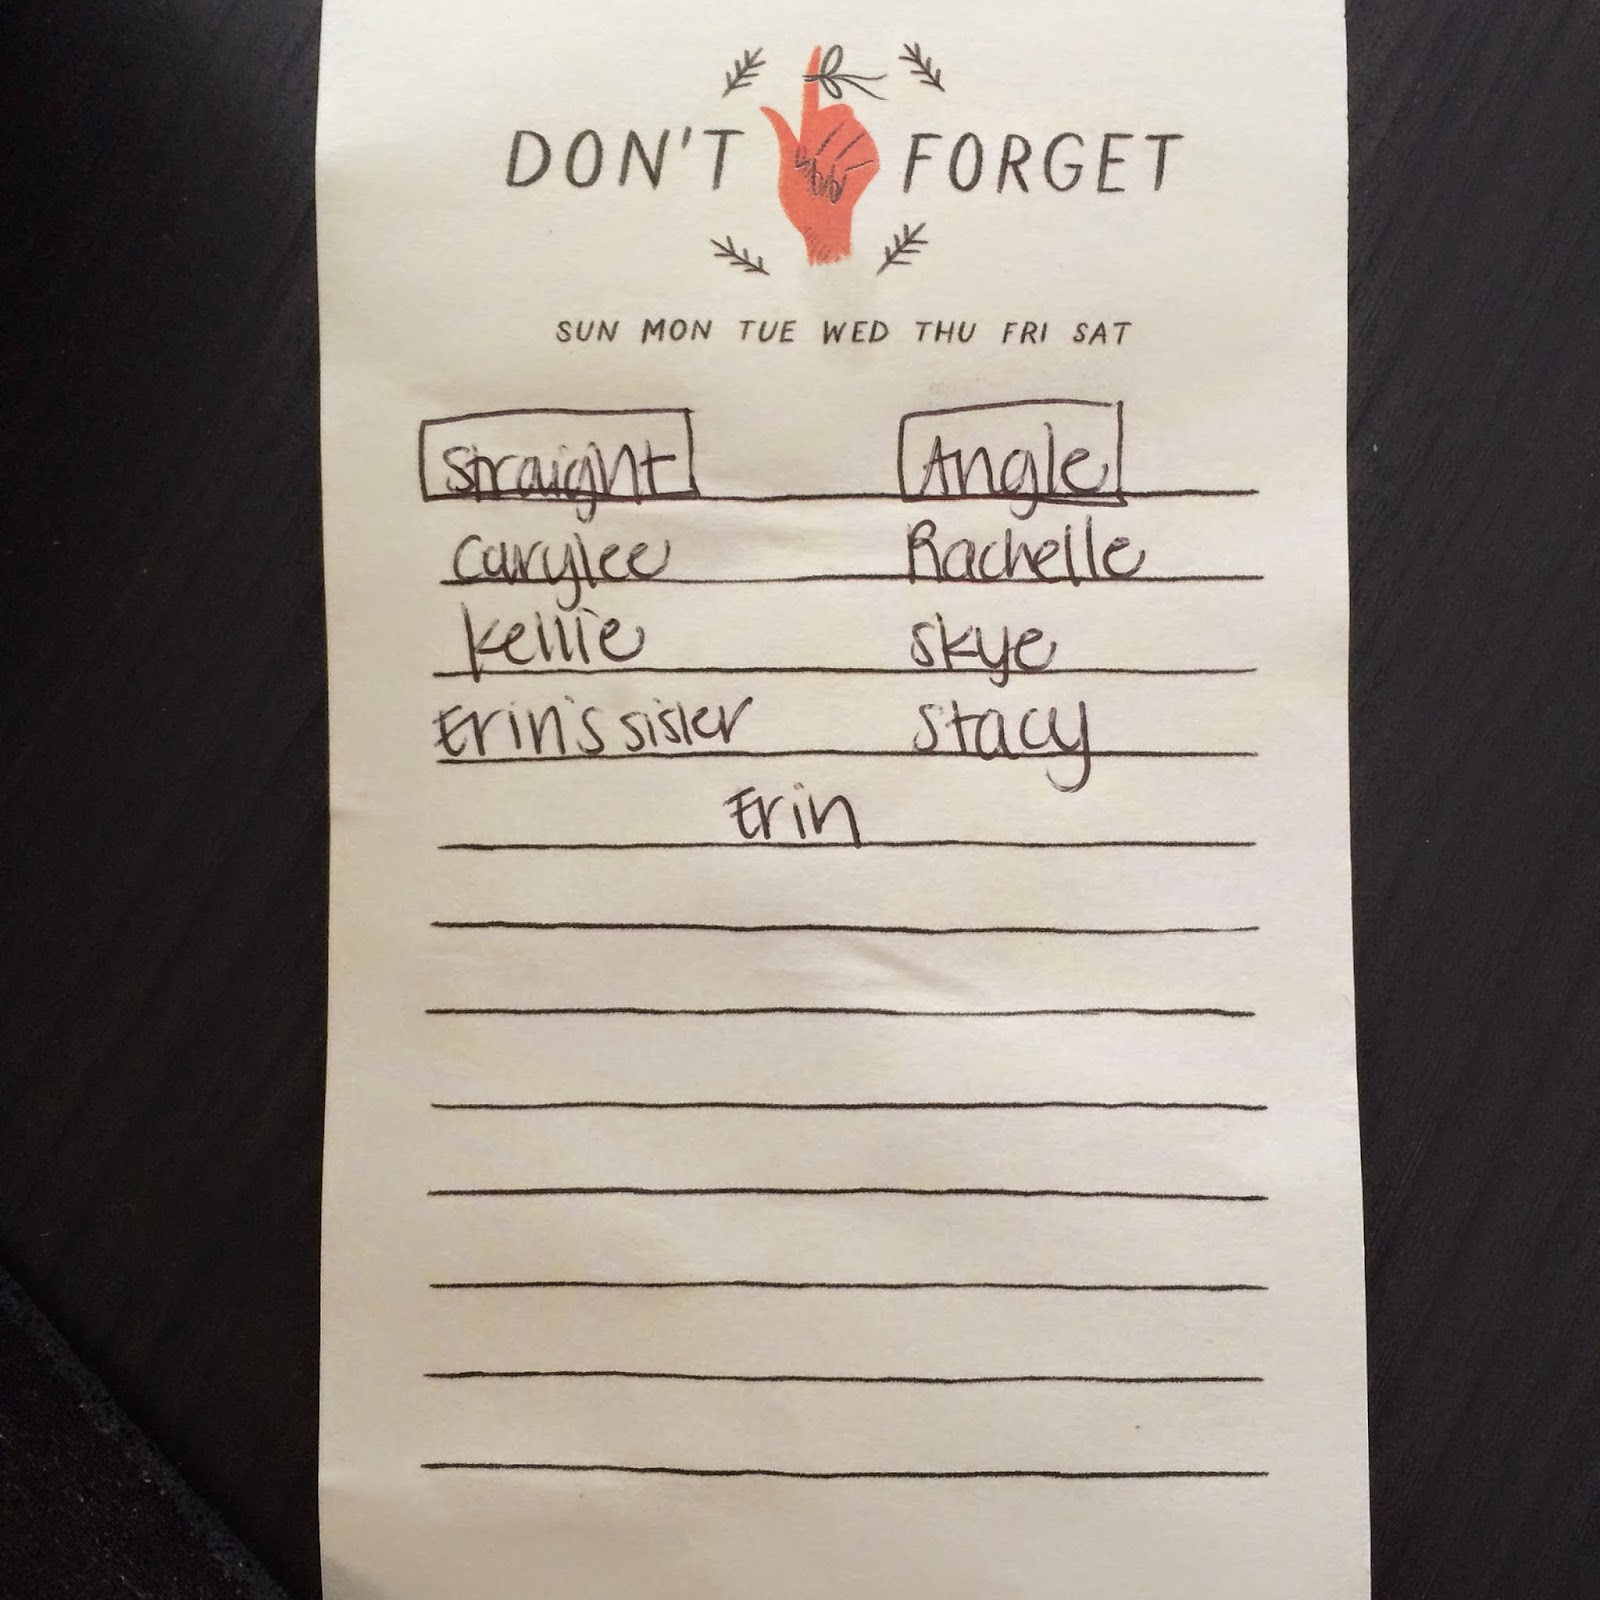 DON'T FORGET
SUN MON TUE WED THU FRI SAT
Straight Angle
Carylee Rachelle
Kellie Skye
Erin's sister Stacy
Erin